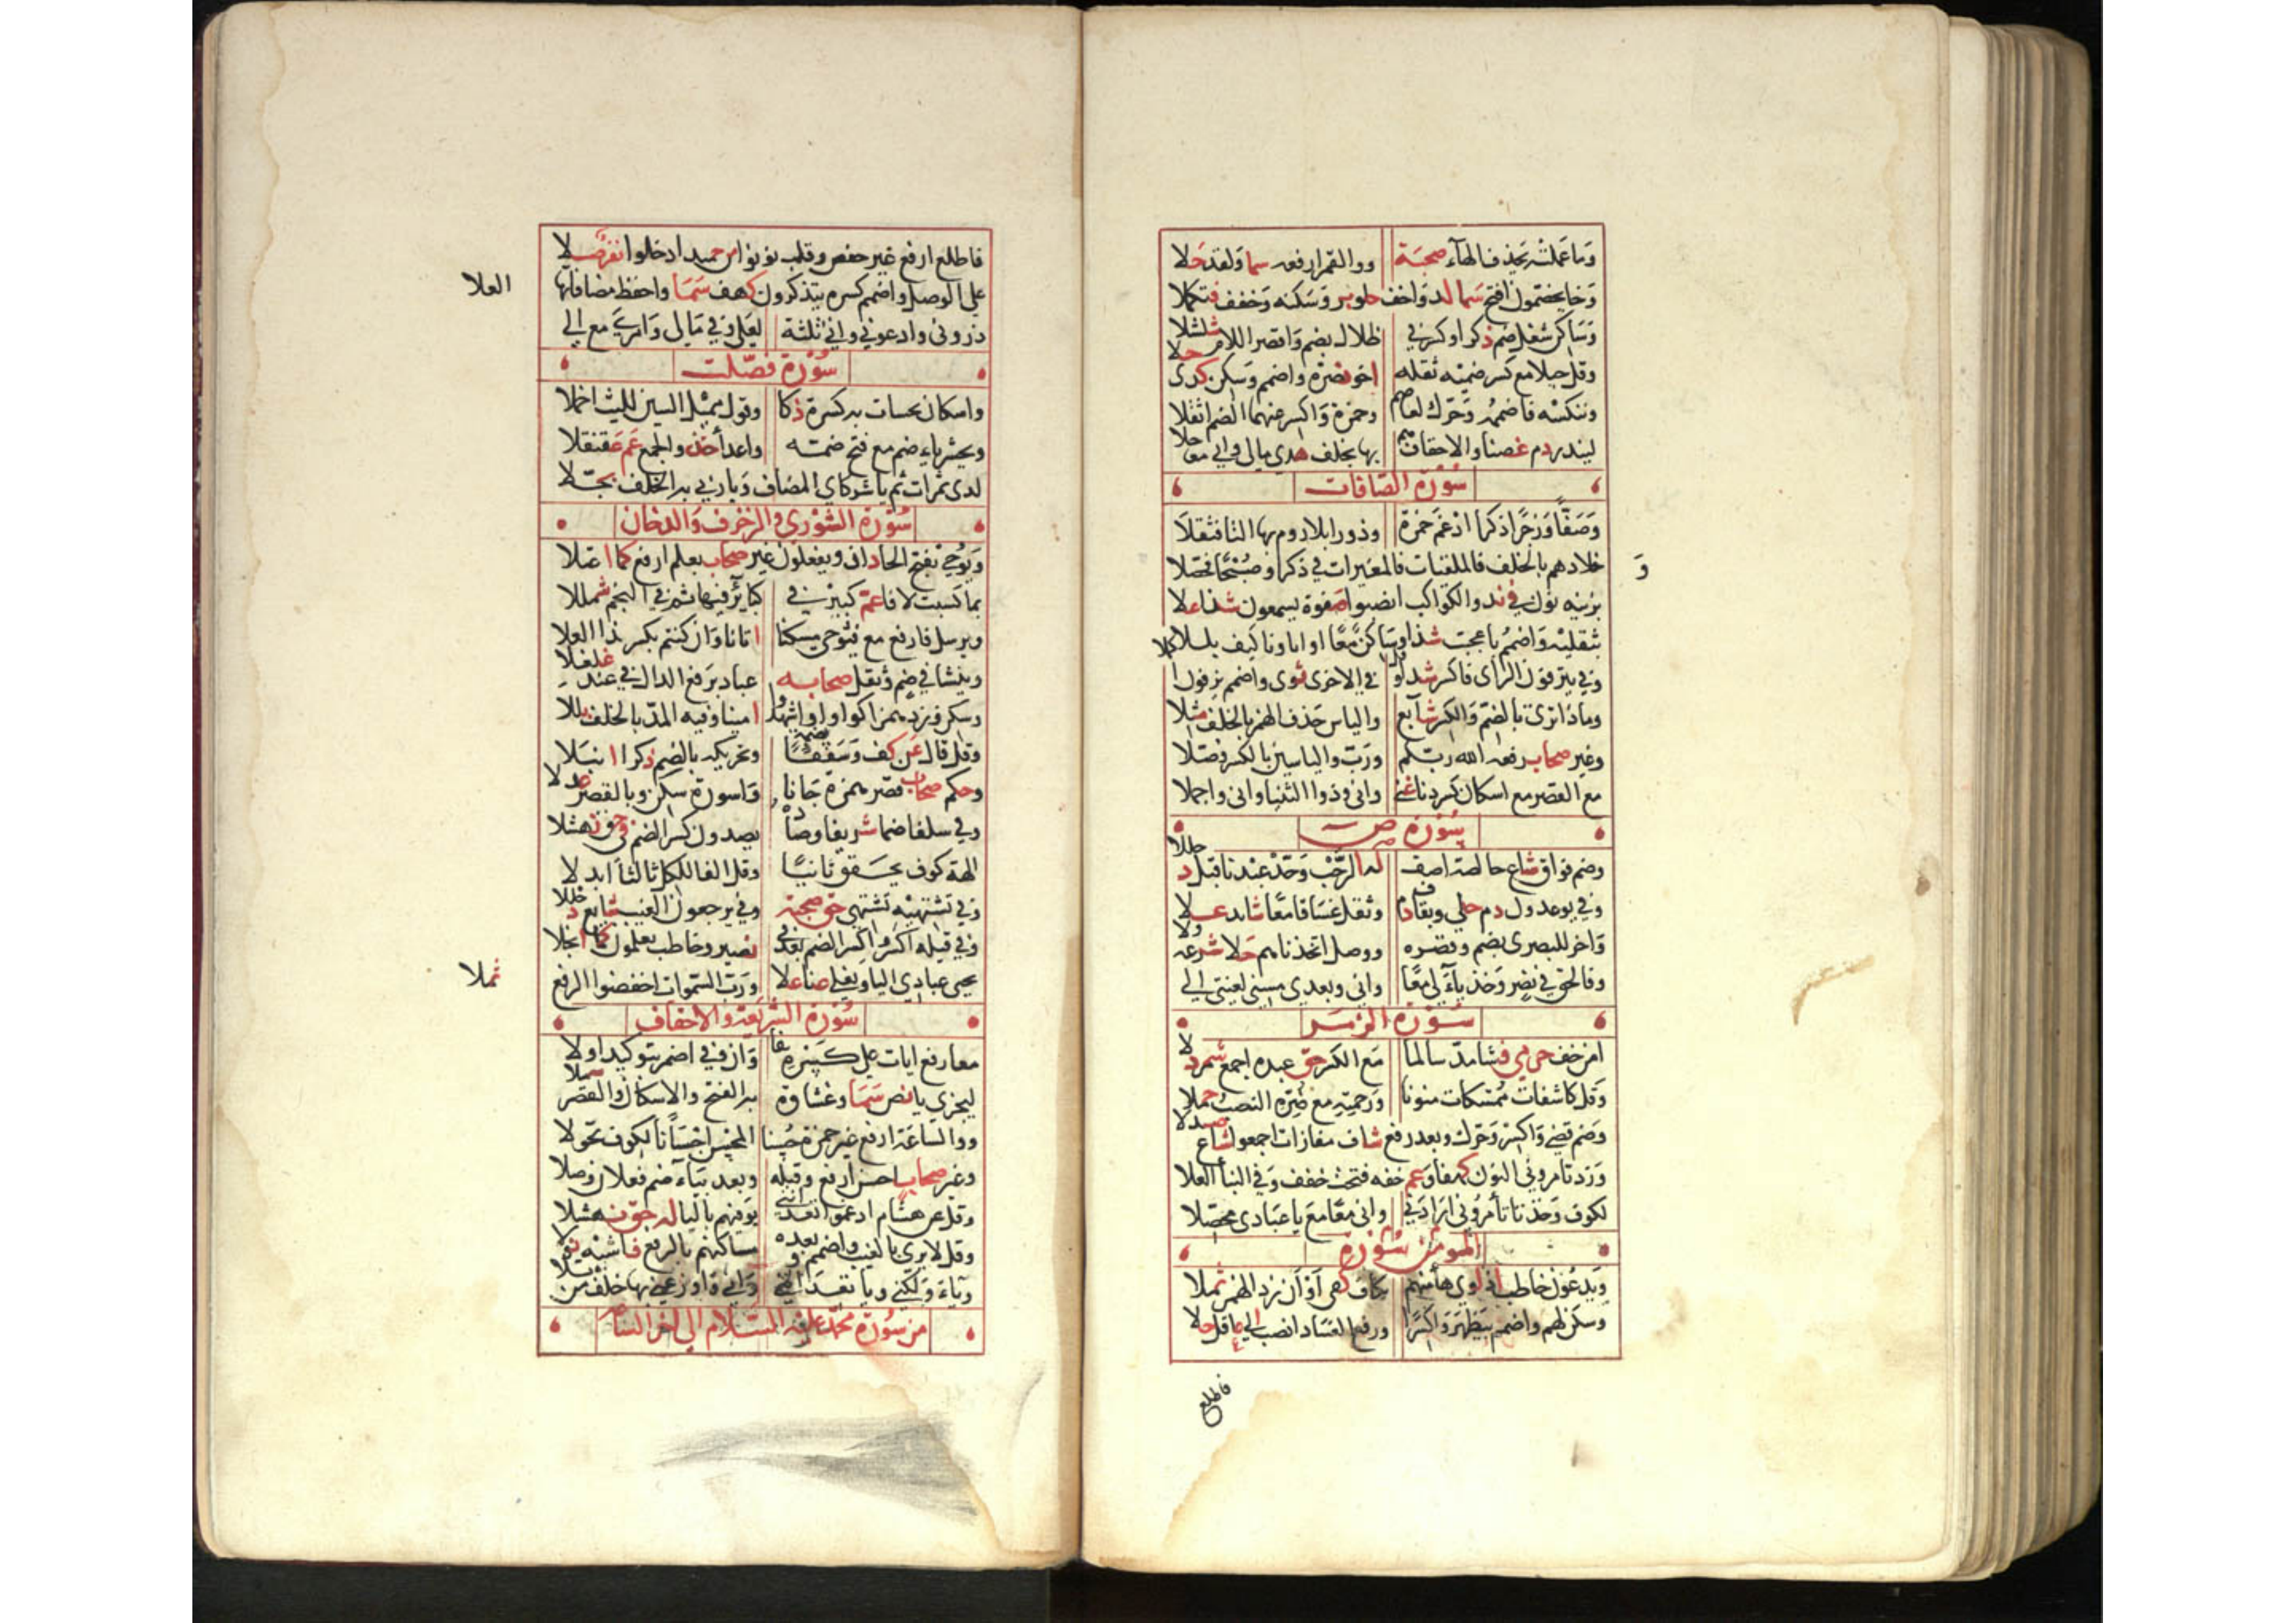 وما عملته يحذف الهاء صحبة ووالقمر ارفعه سما ولقد حلا
وخا يخصمون افتح سما لذ واخف حلو بر وسكنه وخفف فتكملا
وساكن شغل ضم ذكرا وكسر في ظلال بضم واقصر اللام شلشلا
وقل جبلا مع كسر ضميه ثقله اخو نصرة واضمم وسكن كذى حلا
وننكسه فاضممه وحرك لعاصم وحمزة واكسر عنهما الضم اثقلا
لينذر دم غصنا والاحقاف هم بها بخلف هدى مالى واني معا حلا
سورة الصافات
وصفا وزجرا ذكرا ادغم حمزة وذروا بلا روم بها التا فثقلا
وخلادهم بالخلف فالملقيات فالمغيرات في ذكرا وصبحا فحصلا
بزينة نون في ند والكواكب انصبوا صفوة يسمعون شذا علا
بثقليه واضمم تا عجبت شذا وساكن معا او اباونا كيف بللا
وفي ينزفون الزاى فاكسر شذا وقل في الاخرى ثوى واضمم يزفون فاكملا
وماذا ترى بالضم والكسر شايع والياس حذف الهمز بالخلف مثلا
وغير صحاب رفعه الله ربكم ورب والياسين بالكسر وصلا
مع القصر مع اسكان كسر دنا غنى واني وذو الثنيا واني واجملا
سورة ص
وضم فواق شاع خالصة اضف له الرحب وحد عبدنا قبل دخللا
وفي يوعدون دم حلى وبقاف دم وثقل غساقا معا شايد علا
واخر للبصرى بضم وقصره ووصل اتخذناهم حلا شرعه ولا
وفالحق في نصر وخذ ياء لي معا واني وبعدي مسني لعنتي الي
سورة الزمر
امن خف حرمي فشا مد سالما مع الكسر حق عبده اجمع شمردلا
وقل كاشفات ممسكات منونا ورحمته مع ضره النصب حملا
وضم قضى واكسر وحرك وبعد رفع شاف مفازات اجمعوا شاع صندلا
وزد تامروني النون كهفا وعم خفه فتحت خفف وفي النبأ العلا
لكوف وخذ يا تأمروني ارادني واني معا مع يا عبادى محصلا
المومن سورة
ويدعون خاطب اذ لوى هاء منهم بكاف كفى او ان زد الهمز ثملا
وسكن لهم واضمم بيظهر واكسرا ورفع الفساد انصب الى عاقل حلا
فاطلع
فاطلع ارفع غير حفص وقلب نونوا من حميد ادخلوا نفر صلا
على الوصل واضمم كسره يتذكرون كهف سما واحفظ مضافاتها العلا
ذروني وادعوني واني ثلثة لعلي وفي مالى وامرى مع الي
سورة فصلت
واسكان نحسات به كسرة ذكا وقول مميل السين لليث اخملا
ونحشر ياء ضم مع فتح ضمه واعدأ خذ والجمع عم عقنقلا
لدى ثمرات ثم يا شركاي المضاف ويا ربي به الخلف بجلا
سورة الشورى والزخرف والدخان
ويوحى بفتح الحا دان ويفعلون غير صحاب يعلم ارفع كما اعتلا
بما كسبت لا فا عم كبير في كبائر فيها ثم في النجم شمللا
ويرسل فارفع مع فيوحى مسكنا اتانا وان كنتم بكسر شذا العلا
وينشا في ضم وثقل صحابه عباد برفع الدال في عند غلغلا
وسكن وزد همزا كواو اوأشهدوا امينا وفيه المد بالخلف بللا
وقل قال عن كف وسقفا بضمه وتحريكه بالضم ذكر انبلا
وحكم صحاب قصر همزة جانا واسورة سكن وبالقصر عدلا
وفي سلفا ضما شريف وصاده يصدون كسر الضم في حق نهشلا
الهة كوف يحقق ثانيا وقل الفا للكل ثالثا ابدلا
وفي تشتهيه تشتهي حق صحبة وفي يرجعون الغيب شايع دخللا
وفي قيله اكسر واكسر الضم بعد في نصير وخاطب يعلمون كما انجلا
بحتى عبادي اليا ويغلي دنا علا ورب السموات اخفضوا الرفع ثملا
سورة الشريعة والاحقاف
معا رفع ايات على كسره شفا وان وفي اضمر بتوكيد اولا
ليجزي يا نص سما وغشاوة به الفتح والاسكان والقصر شملا
ووالساعة ارفع غير حمزة حسنا المحسن احسانا لكوف تحولا
وغير صحاب احسن ارفع وقبله وبعد بياء ضم فعلان وصلا
وقل عن هشام ادغموا تعدانني يوفيهم باليا له حق نهشلا
وقل لا يرى بالغيب واضمم وبعده مساكنهم بالرفع فاشيه نولا
وياء ولكني ويا تعدانني واني واوزعني بها خلف من تلا
من سورة محمد عليه السلام الى اخر
العلا
ثملا